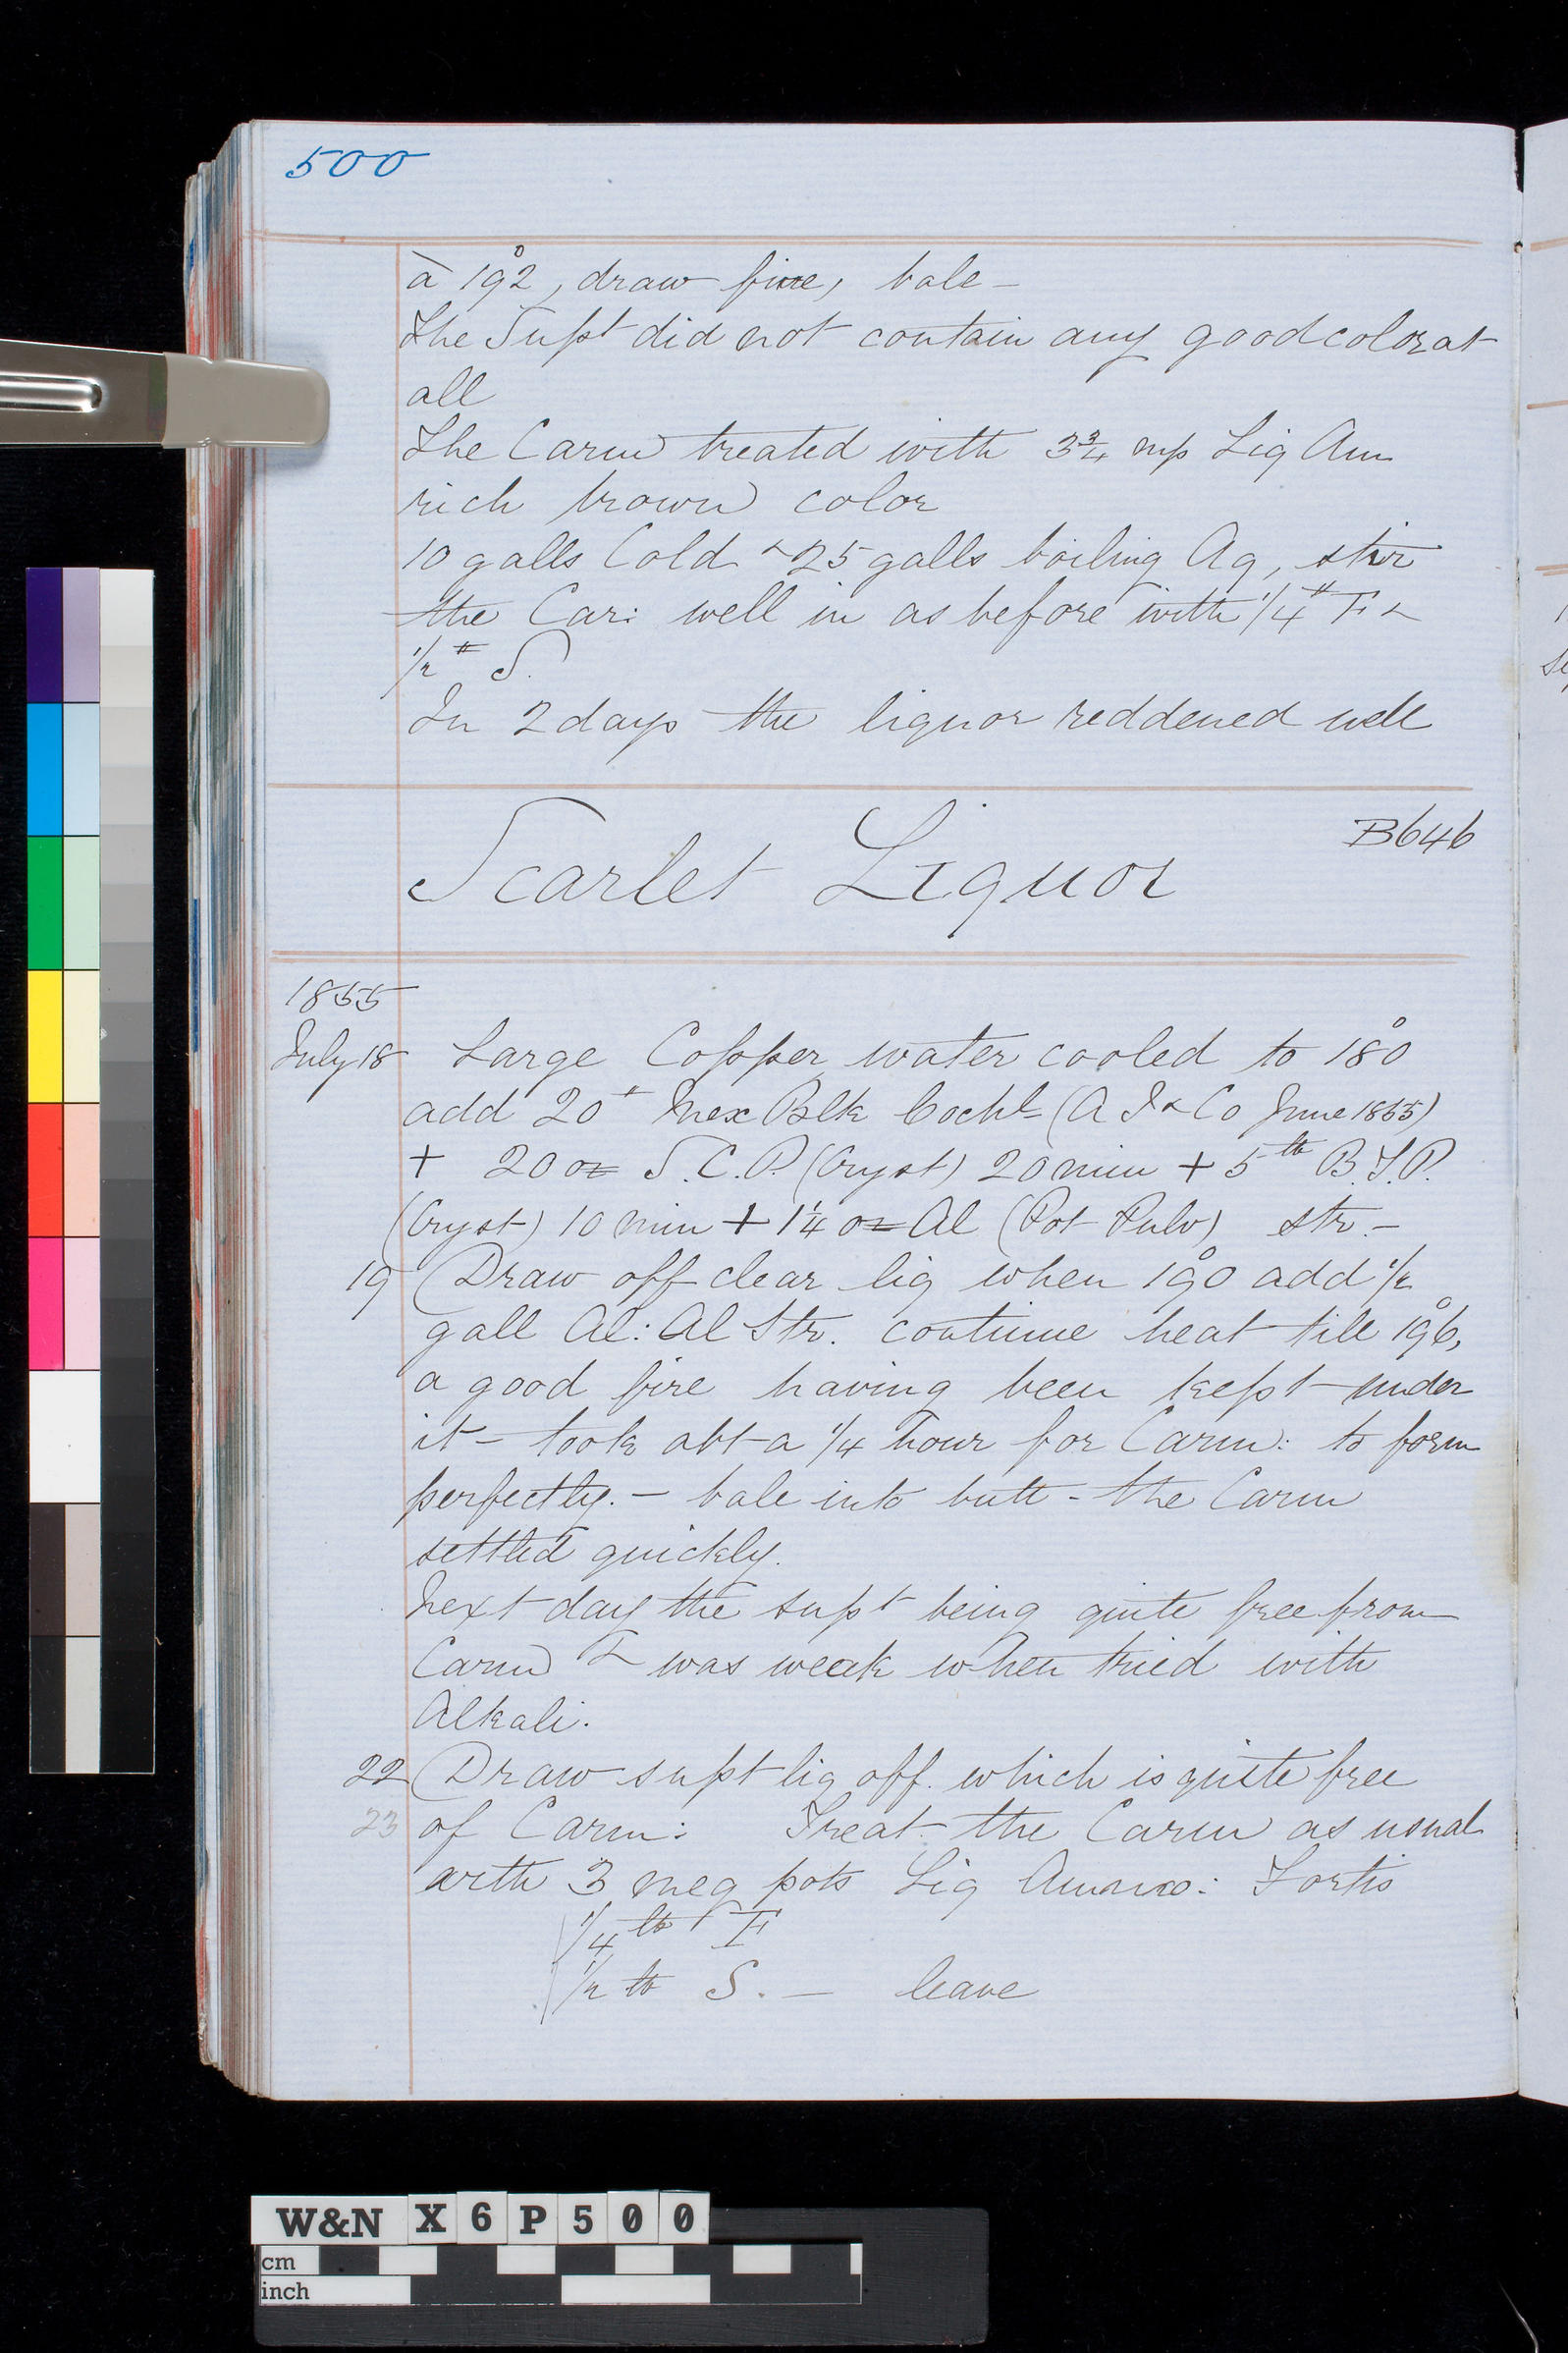 500
à 192°, draw fire, bale –
The Supt did not contain any good color at
all
The Carm treated with 3¾ mp Liq Am
rich brown color
10 galls Cold & 25 galls boiling Aq, stir
the Car: well in as before with 1/4 # F &
1/2 # S.
In 2 days the liquor reddened well
Scarlet Liquor
B646
1855
July 18 Large Copper water cooled to 180°
add 20 # Mex Blk Cochl (A J & Co June 1855)
+ 20 oz S.C.P. (Cryst) 20 min + 5 lb B.T.P.
(Cryst) 10 min + 1¼ oz Al (Pot Pulv) str. –
19 Draw off clear liq when 190° add 1/2
gall Al: Al Str. continue heat till 196°,
a good fire having been kept under
it – took abt a 1/4 hour for Carm: to form
perfectly. – bale into butt – the Carm
settled quickly.
Next day the supt being quite free from
Carm & was weak when tried with
Alkali.
22 Draw supt liq off. which is quite free
23 of Carm: Treat the Carm as usual
with 3 meg pots Liq Ammo: Fortis
1/4 lb F
1/2 lb S. – leave
W&N X6P500
cm
inch